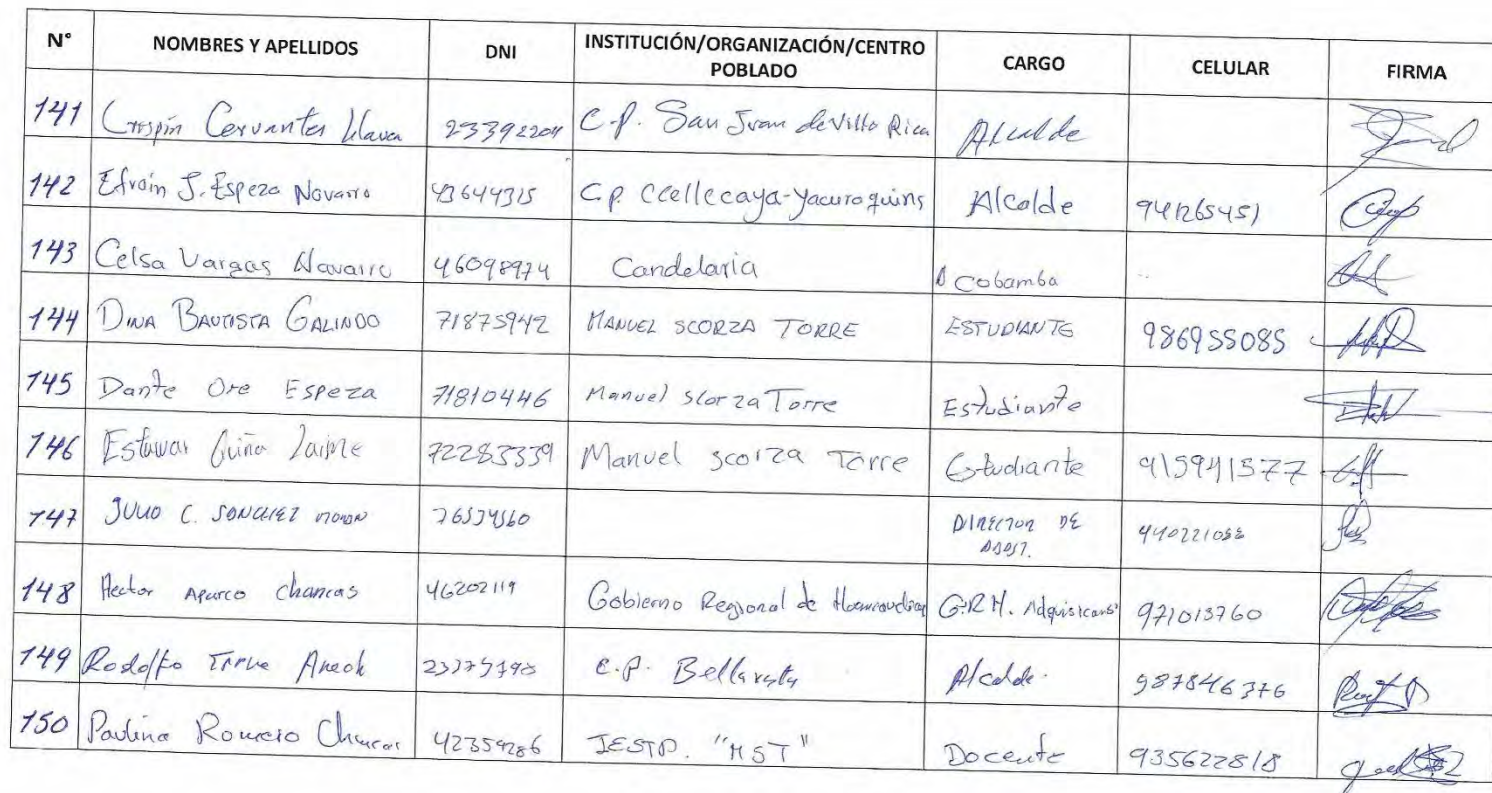 N° NOMBRES Y APELLIDOS DNI INSTITUCIÓN/ORGANIZACIÓN/CENTRO POBLADO CARGO CELULAR FIRMA
141 Crispín Cervantes C.P. San Juan de Villa Rica Alcalde
142 Efraín J. Espeza Navarro 43644315 C.P. Ccellccaya-Yacuro Alcalde 941265451
143 Celsa Vargas Navarro 46098974 Candelaria Acobamba
144 DINA BAUTISTA GALINDO 71875942 MANUEL SCORZA TORRE ESTUDIANTE 986955085
145 Dante Ore Espeza 71810446 Manuel Scorza Torre Estudiante
146 Jaime 72283339 Manuel Scorza Torre Estudiante 915941577
147 JULIO C. SANCHEZ DIRECTOR DE
148 Hector Aparco Chancas 46202119 Gobierno Regional de Huancavelica 971013760
149 Rodolfo C.P. Bellavista Alcalde. 987846376
150 Paulina Romero 42359286 "MST" Docente 935622818